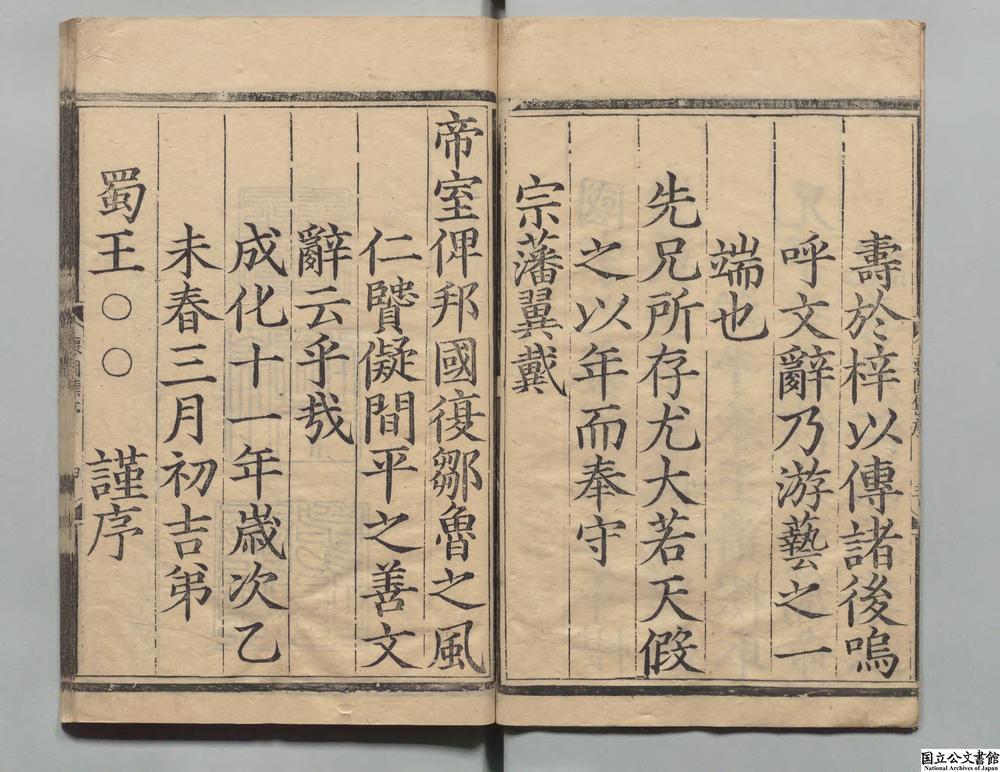 壽於梓以傳諸後嗚
呼文辭乃游藝之一
端也
先兄所存尤大若天假
之以年而奉守
宗藩翼戴
帝室俾邦國復鄒魯之風
仁賢儗間平之善文
辭云乎哉
成化十一年歲次乙
未春三月初吉弟
蜀王○○　謹序
国立公文書館
National Archives of Japan